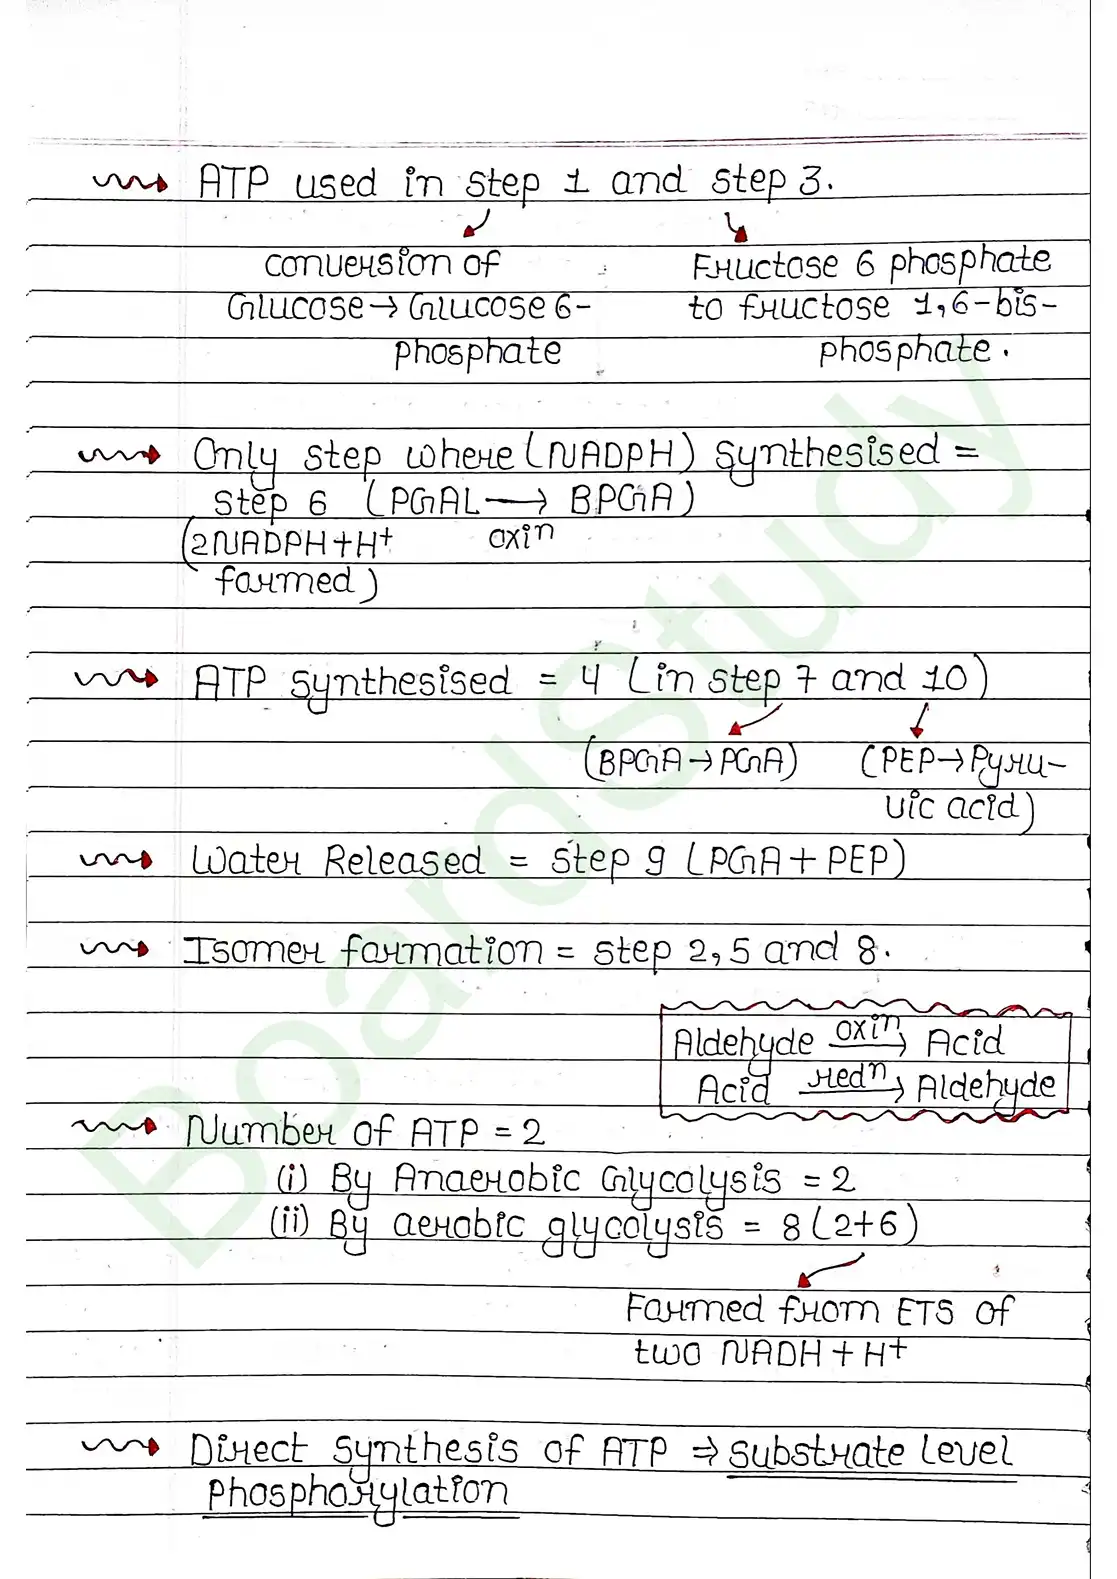 ATP used in step 1 and step 3.
conversion of
Glucose → Glucose 6-
phosphate
Fructose 6 phosphate
to fructose 1,6-bis-
phosphate.
Only step where (NADPH) synthesised =
step 6 (PGAL → BPGA)
(2NADPH + H⁺ oxiⁿ
formed)
ATP synthesised = 4 (in step 7 and 10)
(BPGA → PGA) (PEP → Pyru-
vic acid)
Water Released = step 9 (PGA + PEP)
Isomer formation = step 2, 5 and 8.
Aldehyde oxiⁿ→ Acid
Acid redⁿ→ Aldehyde
Number of ATP = 2
(i) By Anaerobic Glycolysis = 2
(ii) By aerobic glycolysis = 8 (2+6)
Formed from ETS of
two NADH + H⁺
Direct synthesis of ATP ⇒ substrate level
phosphorylation
BoardStudy